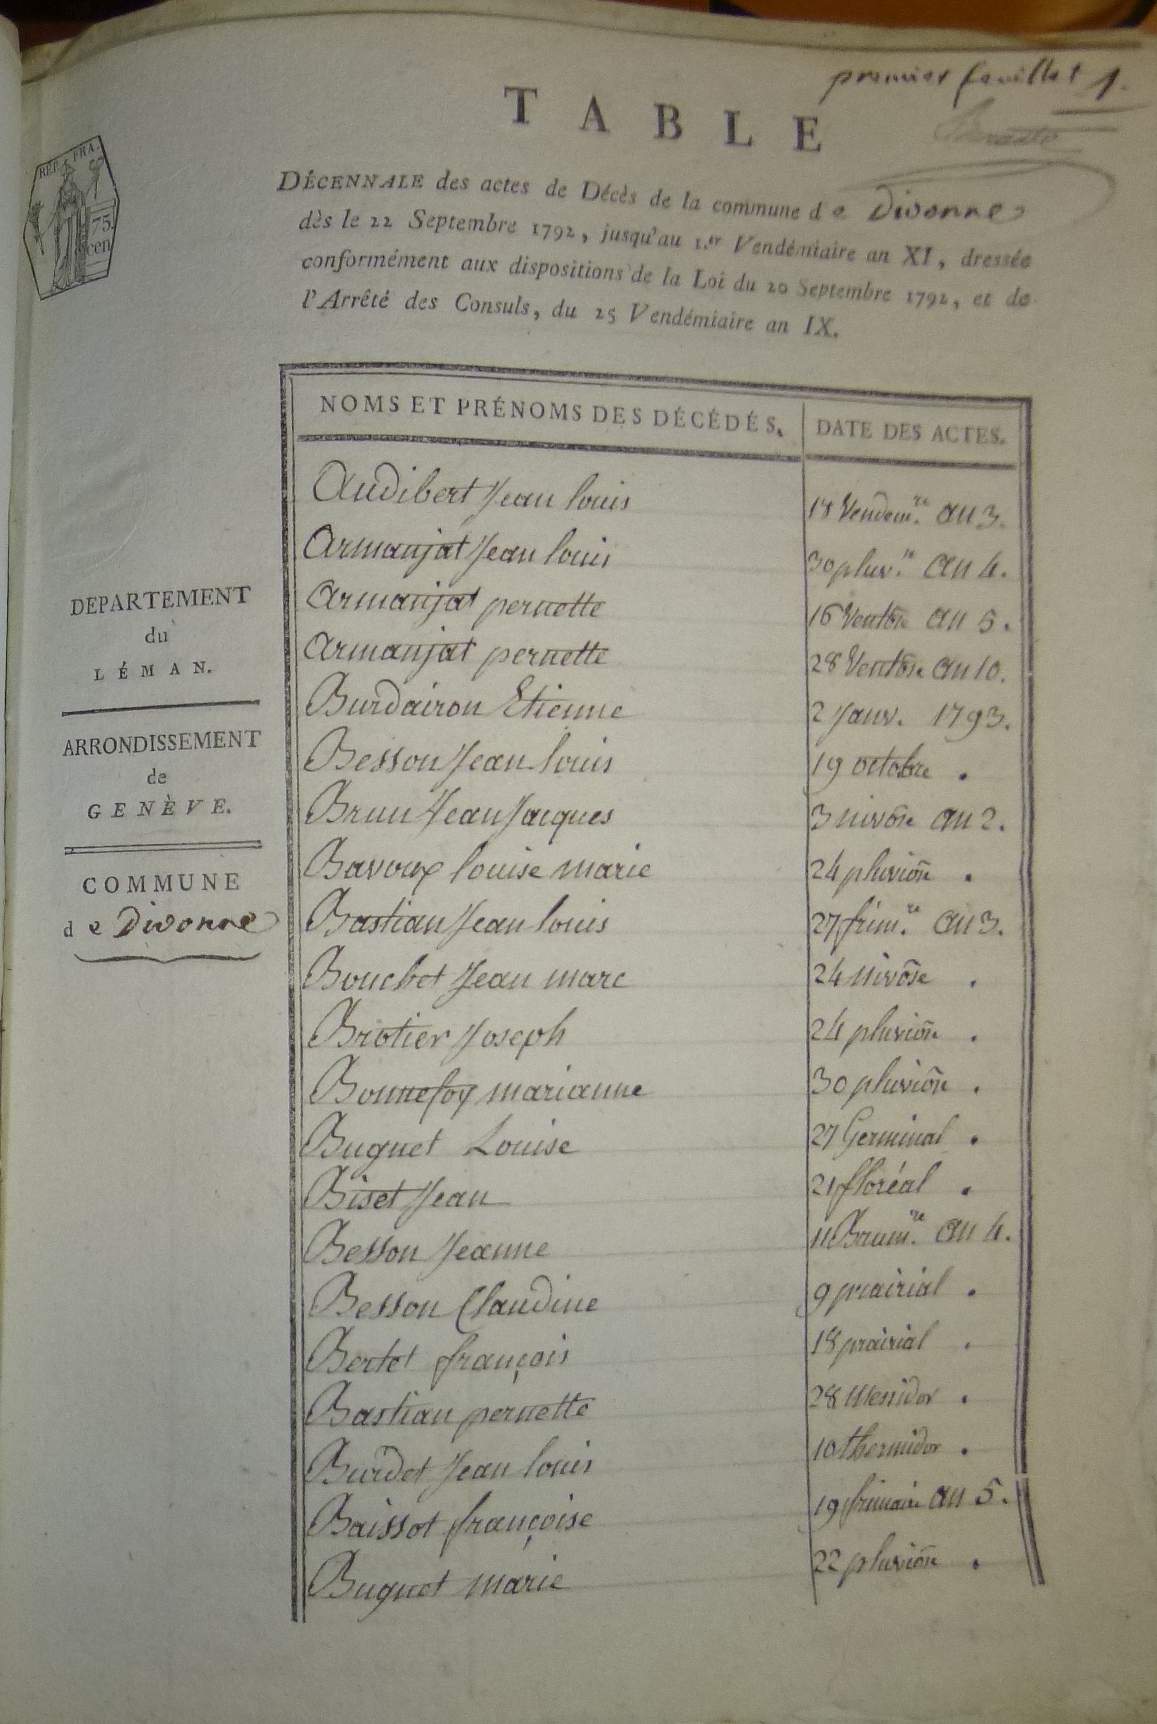 premier feuillet 1.
TABLE
REP. FRA.
75.
cen
DÉCENNALE des actes de Décès de la commune de Divonne
dès le 22 Septembre 1792, jusqu'au 1.er Vendémiaire an XI, dressée
conformément aux dispositions de la Loi du 20 Septembre 1792, et de
l'Arrêté des Consuls, du 25 Vendémiaire an IX.
NOMS ET PRÉNOMS DES DÉCÉDÉS. DATE DES ACTES.
DEPARTEMENT
du
LÉMAN.
ARRONDISSEMENT
de
GENÈVE.
COMMUNE
de Divonne
Audibert Jean louis 18 Vendem.re an 3.
Armanjat Jean louis 30 pluv.se an 4.
Armanjat pernette 16 Ventôse an 5.
Armanjat pernette 28 Ventôse an 10.
Burdairon Etienne 2 Janv. 1793.
Besson Jean louis 19 octobre .
Brun Jean Jacques 3 nivôse an 2.
Bavoux louise marie 24 pluviôse .
Bastian Jean louis 27 frim.re an 3.
Bouchet Jean marc 24 nivôse .
Brotier Joseph 24 pluviôse .
Bonnefoy marianne 30 pluviôse .
Buguet Louise 27 Germinal .
Biset Jean 21 floréal .
Besson Jeanne 11 Brum.re an 4.
Besson Claudine 9 prairial .
Bertet françois 18 prairial .
Bastian pernette 28 Messidor .
Burdet Jean louis 10 thermidor .
Baissot françoise 19 frimaire an 5.
Buguet marie 22 pluviôse .